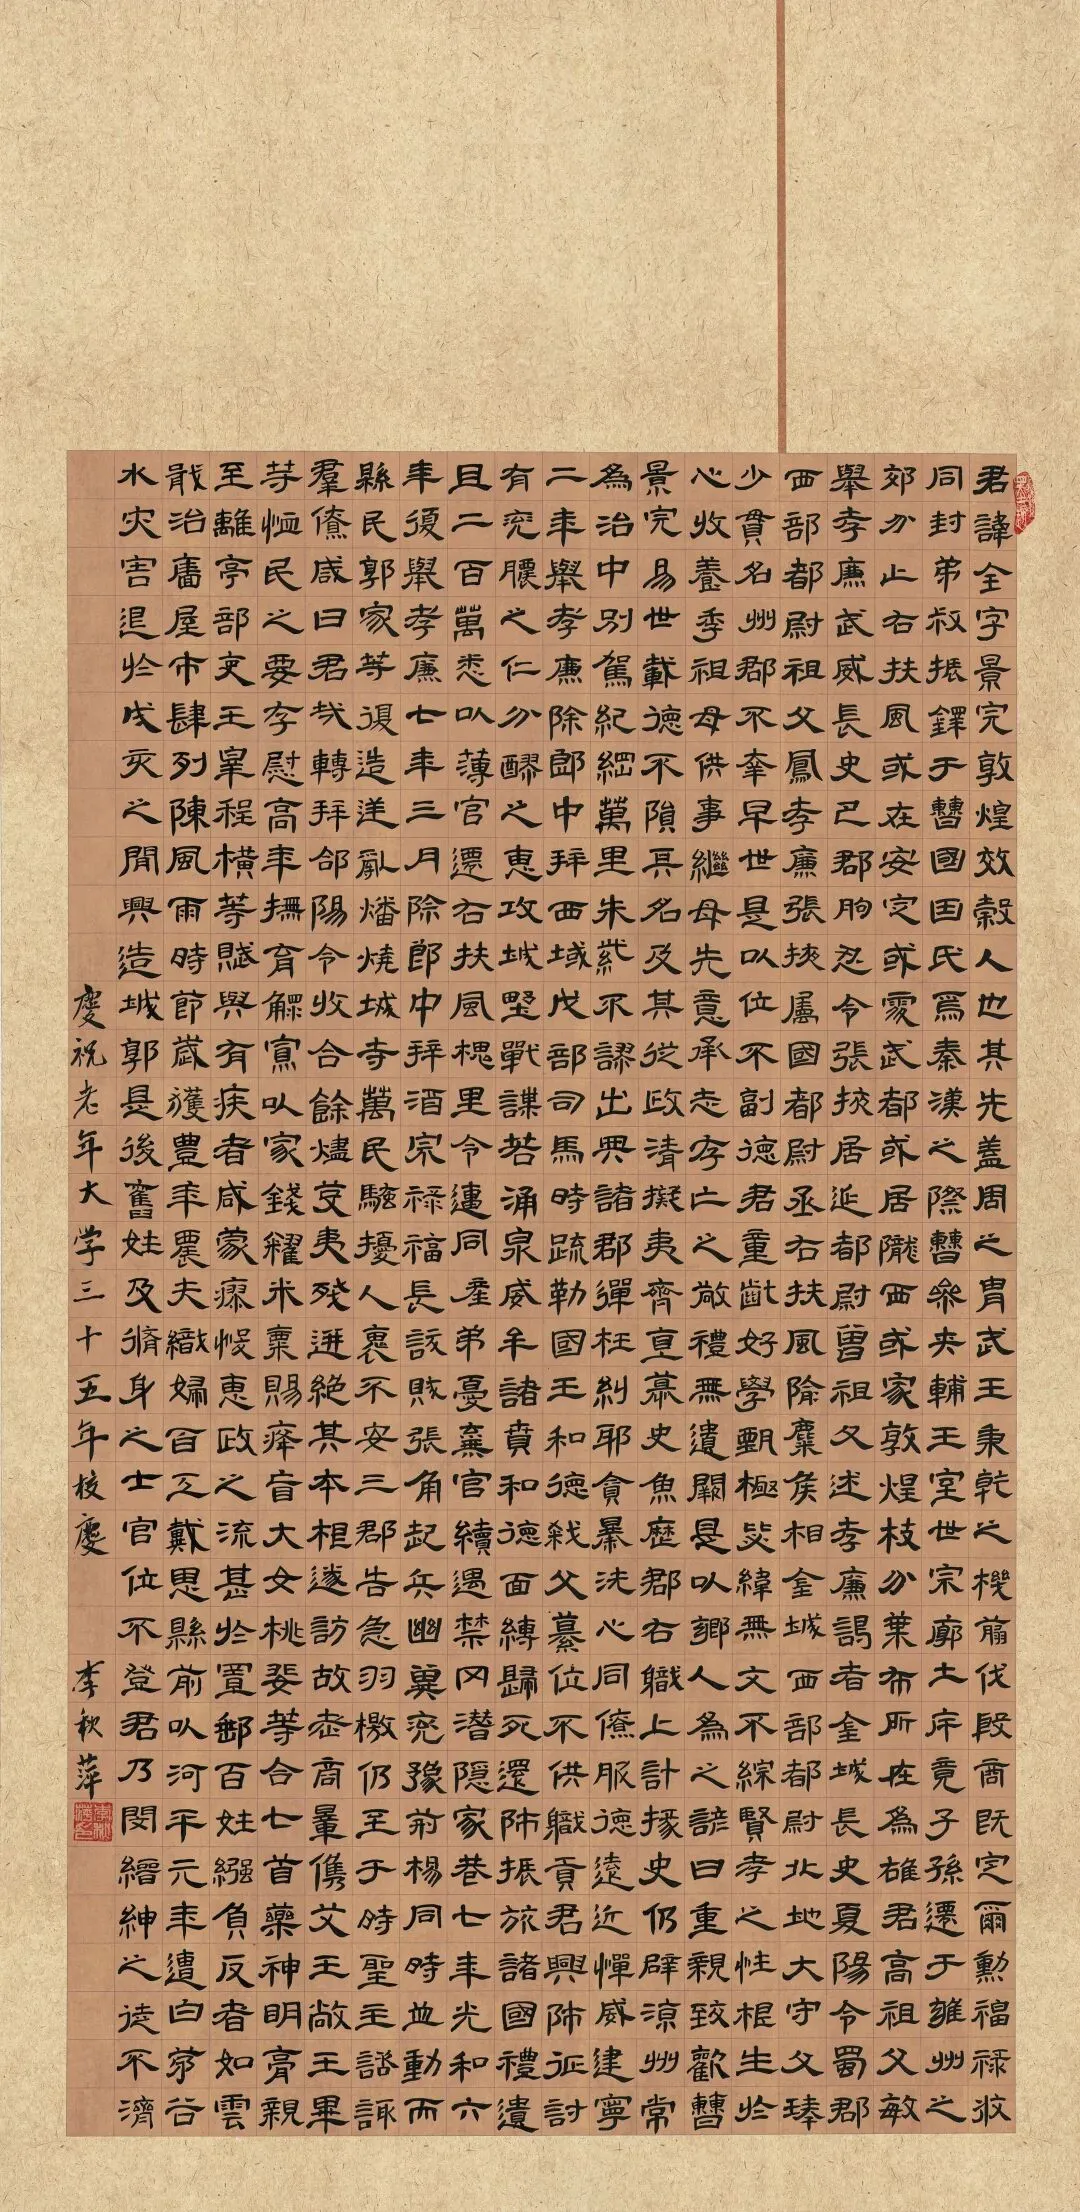 君諱全字景完敦煌效穀人也其先蓋周之胄武王秉乾之機翦伐殷商既定爾勳福祿攸
同封弟叔振鐸于曹國因氏焉秦漢之際曹參夾輔王室世宗廓土斥竟子孫遷于雍州之
郊分止右扶風或在安定或處武都或居隴西或家敦煌枝分葉布所在為雄君高祖父敏
舉孝廉武威長史巴郡朐忍令張掖居延都尉曾祖父述孝廉謁者金城長史夏陽令蜀郡
西部都尉祖父鳳孝廉張掖屬國都尉丞右扶風隃麋侯相金城西部都尉北地大守父琫
少貫名州郡不幸早世是以位不副德君童齔好學甄極毖緯無文不綜賢孝之性根生於
心收養季祖母供事繼母先意承志存亡之敬禮無遺闕是以鄉人為之諺曰重親致歡曹
景完易世載德不隕其名及其從政清擬夷齊直慕史魚歷郡右職上計掾史仍辟涼州常
為治中別駕紀綱萬里朱紫不謬出典諸郡彈枉糾邪貪暴洗心同僚服德遠近憚威建寧
二年舉孝廉除郎中拜西域戊部司馬時疏勒國王和德弒父篡位不供職貢君興師征討
有兗膿之仁分醪之惠攻城野戰謀若涌泉威牟諸賁和德面縛歸死還師振旅諸國禮遺
且二百萬悉以薄官遷右扶風槐里令遭同產弟憂棄官續遇禁罔潛隱家巷七年光和六
年復舉孝廉七年三月除郎中拜酒泉祿福長訞賊張角起兵幽冀兗豫荊楊同時並動而
縣民郭家等復造逆亂燔燒城寺萬民騷擾人裹不安三郡告急羽檄仍至于時聖主諮諏
群僚咸曰君哉轉拜郃陽令收合餘燼芟夷殘迸絕其本根遂訪故老商量儁艾王敞王畢
等恤民之要存慰高年撫育鰥寡以家錢糴米粟賜癃盲大女桃婓等合七首藥神明膏親
至離亭部吏王皋程橫等賦與有疾者咸蒙瘳悛惠政之流甚於置郵百姓繦負反者如雲
戢治廧屋市肆列陳風雨時節歲獲豐年農夫織婦百工戴恩縣前以河平元年遭白茅谷
水灾害退於戌亥之間興造城郭是後舊姓及脩身之士官位不登君乃閔縉紳之徒不濟
慶祝老年大学三十五年校慶
李秋萍